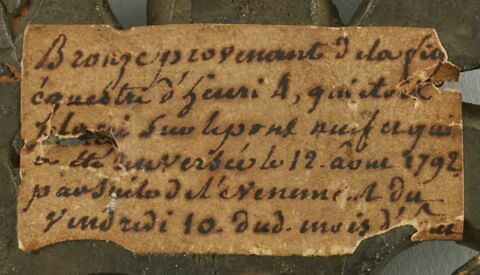 Bronze provenant de la fig
équestre d'henri 4, qui étoit
placé sur le pont neuf et qui
a été renversée le 12. Août 1792
par suite de l'evenement du
Vendredi 10. dud. mois d'